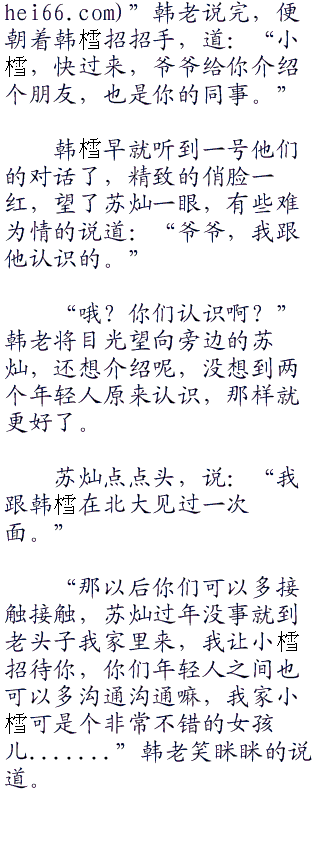 hei66.com)”韩老说完，便
朝着韩樰招招手，道：“小
樰，快过来，爷爷给你介绍
个朋友，也是你的同事。”
韩樰早就听到一号他们
的对话了，精致的俏脸一
红，望了苏灿一眼，有些难
为情的说道：“爷爷，我跟
他认识的。”
“哦？你们认识啊？”
韩老将目光望向旁边的苏
灿，还想介绍呢，没想到两
个年轻人原来认识，那样就
更好了。
苏灿点点头，说：“我
跟韩樰在北大见过一次
面。”
“那以后你们可以多接
触接触，苏灿过年没事就到
老头子我家里来，我让小樰
招待你，你们年轻人之间也
可以多沟通沟通嘛，我家小
樰可是个非常不错的女孩
儿.......”韩老笑眯眯的说
道。